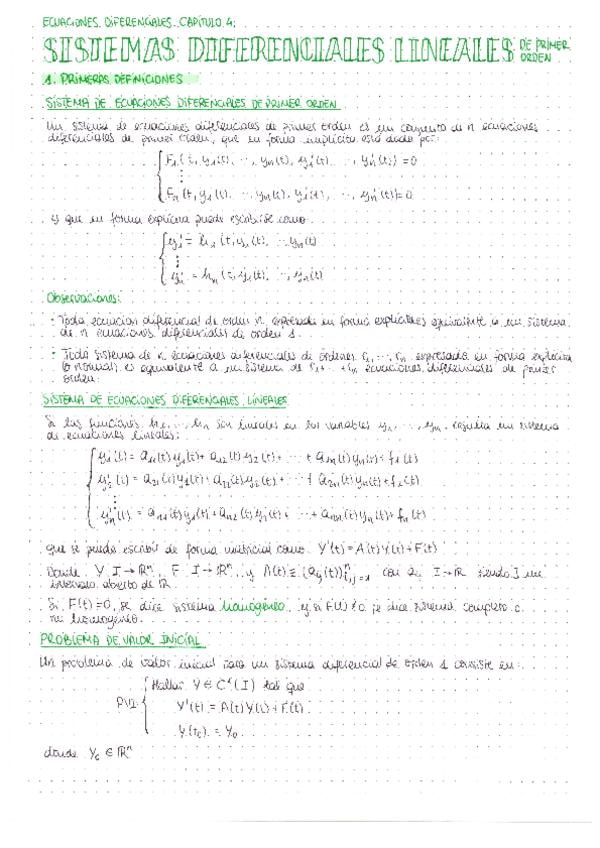 ECUACIONES DIFERENCIALES. CAPÍTULO 4:
SISTEMAS DIFERENCIALES LINEALES DE PRIMER ORDEN
1. PRIMERAS DEFINICIONES
SISTEMA DE ECUACIONES DIFERENCIALES DE PRIMER ORDEN
Un sistema de ecuaciones diferenciales de primer orden es un conjunto de n ecuaciones
diferenciales de primer orden, que en forma implícita está dado por:
F₁(t, y₁(t), ..., yₙ(t), y₁'(t), ..., yₙ'(t)) = 0
⋮
Fₙ(t, y₁(t), ..., yₙ(t), y₁'(t), ..., yₙ'(t)) = 0
y que en forma explícita puede escribirse como
y₁' = h₁(t, y₁(t), ..., yₙ(t)
⋮
yₙ' = hₙ(t, y₁(t), ..., yₙ(t)
Observaciones:
· Toda ecuación diferencial de orden n expresada en forma explícita es equivalente a un sistema
de n ecuaciones diferenciales de orden 1.
· Todo sistema de n ecuaciones diferenciales de órdenes r₁, ..., rₙ expresado en forma explícita
(o normal) es equivalente a un sistema de r₁+...+rₙ ecuaciones diferenciales de primer
orden.
SISTEMA DE ECUACIONES DIFERENCIALES LINEALES
Si las funciones h₁, ..., hₙ son lineales en las variables y₁, ..., yₙ, resulta un sistema
de ecuaciones lineales:
y₁'(t) = a₁₁(t)y₁(t) + a₁₂(t)y₂(t) + ... + a₁ₙ(t)yₙ(t) + f₁(t)
y₂'(t) = a₂₁(t)y₁(t) + a₂₂(t)y₂(t) + ... + a₂ₙ(t)yₙ(t) + f₂(t)
⋮
yₙ'(t) = aₙ₁(t)y₁(t) + aₙ₂(t)y₂(t) + ... + aₙₙ(t)yₙ(t) + fₙ(t)
que se puede escribir de forma matricial como Y'(t) = A(t)Y(t) + F(t)
Donde Y: I → ℝⁿ, F: I → ℝⁿ y A(t) ≡ (aᵢⱼ(t))ⁿᵢ,ⱼ₌₁ con aᵢⱼ: I → ℝ siendo I un
intervalo abierto de ℝ.
Si F(t) = 0, se dice sistema homogéneo, y si F(t) ≠ 0 se dice sistema completo o
no homogéneo.
PROBLEMA DE VALOR INICIAL
Un problema de valor inicial para un sistema diferencial de orden 1 consiste en:
Hallar Y ∈ C¹(I) tal que
PVI: Y'(t) = A(t)Y(t) + F(t)
Y(t₀) = Y₀
donde Y₀ ∈ ℝⁿ